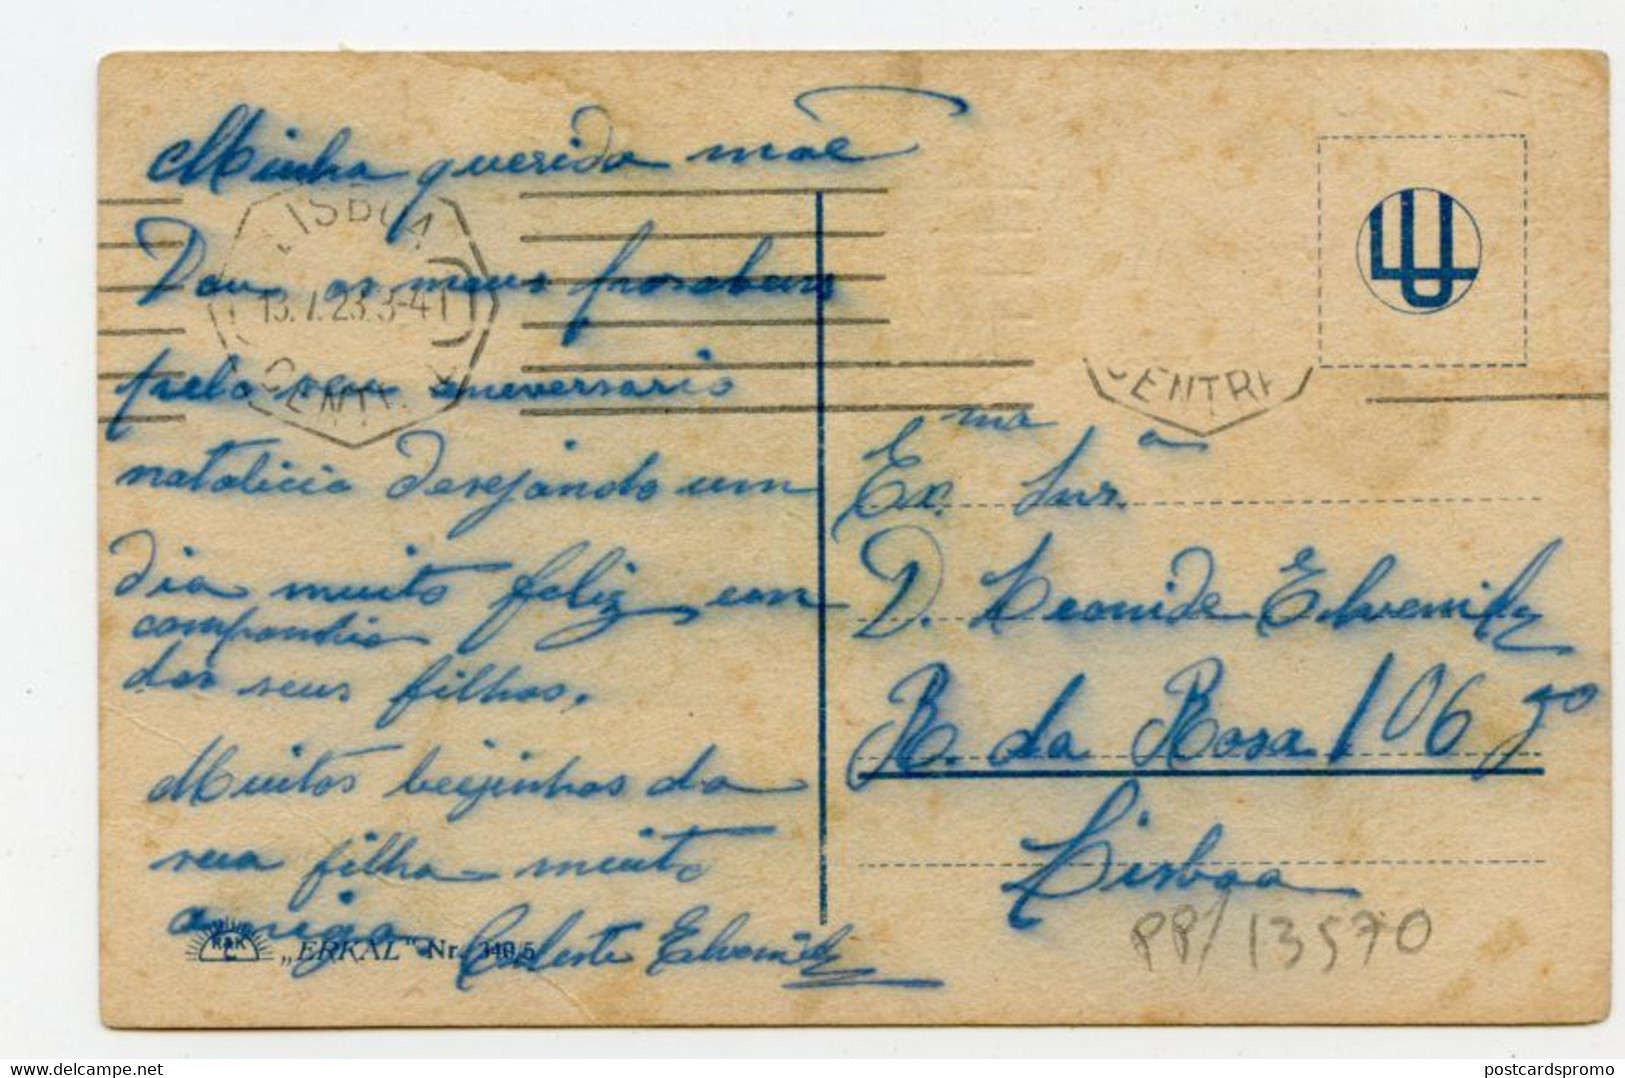 Minha querida mãe
Dou os meus parabens
pelo seu aneversario
natalicio desejando um
dia muito feliz, em
companhia
dos seus filhos.
Muitos beijinhos da
sua filha muito
amiga Celeste
LISBOA
13.7.23.3-4T
CENTRAL
CENTRA
Ex.ma Snr.a
D. Leonide
R. da Rosa 106
Lisboa
R&K
L
„ERKAL" Nr. 340/5
PP/13570
postcardspromo